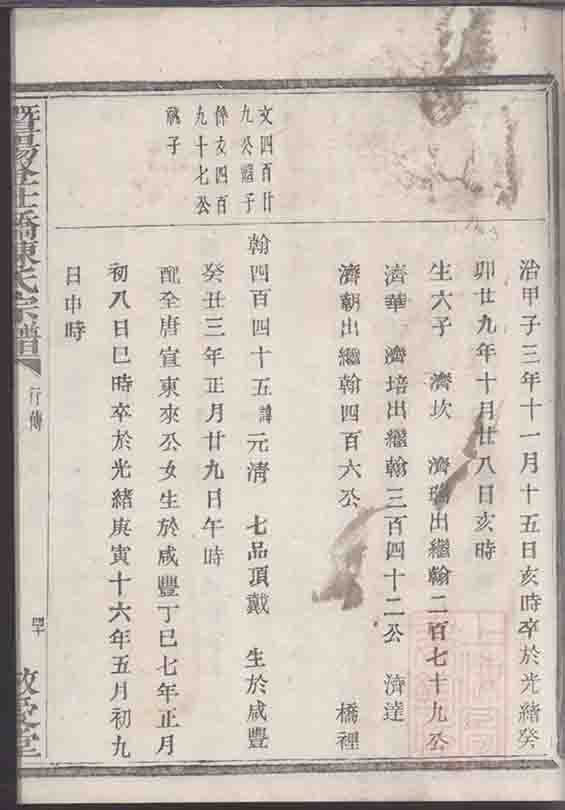 治甲子三年十一月十五日亥時卒於光緒癸
卯廿九年十月廿八日亥時
生六子 濟坎 濟瑞出繼翰二百七十九公
濟華 濟培出繼翰三百四十二公 濟達
濟朝出繼翰四百六公 橋裡
文四百廿
九公繼子
係文四百
九十七公
祧子
翰四百四十五諱元清 七品頂戴 生於咸豐
癸丑三年正月廿九日午時
配全唐宣東來公女生於咸豐丁巳七年正月
初八日巳時卒於光緒庚寅十六年五月初九
日申時
暨陽全社橋陳氏宗譜
行傳
敬愛堂